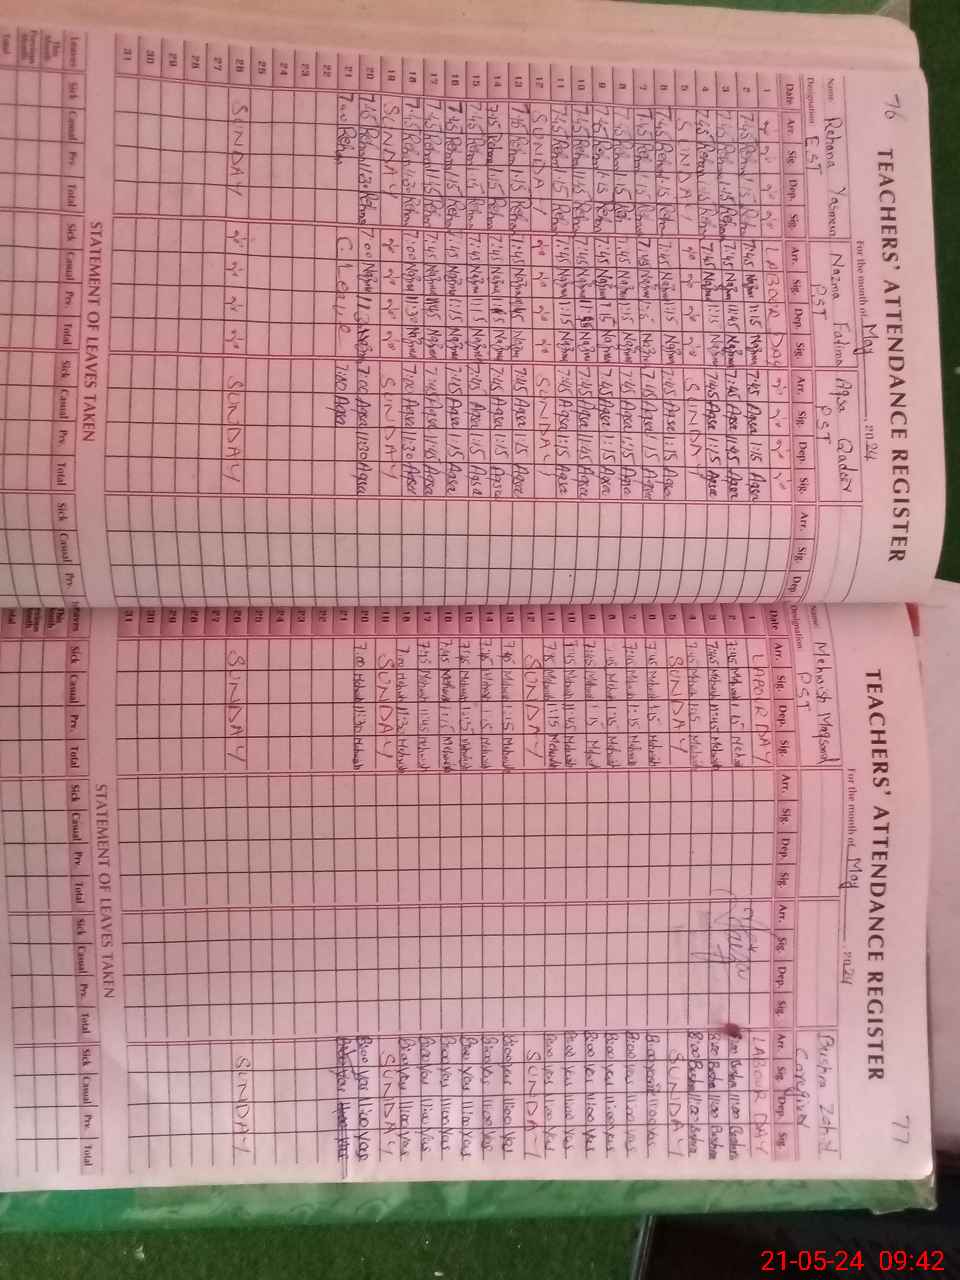 76
TEACHERS' ATTENDANCE REGISTER
For the month of May, 2024
Name Rehana Yasmeen Nazma Fatima Aqsa Qadeer
Designation EST PST PST
Date Arr. Sig. Dep. Sig. Arr. Sig. Dep. Sig. Arr. Sig. Dep. Sig. Arr. Sig. Dep.
1 LABOUR DAY
2 7:45 Rehan 1:15 Rehan 7:45 Nazma 1:15 Nazma 7:45 Aqsa 1:15 Aqsa
3 7:45 Rehan 11:45 Rehan 7:45 Nazma 11:45 Nazma 7:45 Aqsa 11:45 Aqsa
4 7:45 Rehan 1:15 Rehan 7:45 Nazma 1:15 Nazma 7:45 Aqsa 1:15 Aqsa
5 SUNDAY SUNDAY
6 7:45 Rehan 1:15 Rehan 7:45 Nazma 1:15 Nazma 7:45 Aqsa 1:15 Aqsa
7 7:45 Rehan 1:15 Rehan 7:45 Nazma 1:15 Nazma 7:45 Aqsa 1:15 Aqsa
8 7:45 Rehan 1:15 Rehan 7:45 Nazma 1:15 Nazma 7:45 Aqsa 1:15 Aqsa
9 7:45 Rehan 1:15 Rehan 7:45 Nazma 1:15 Nazma 7:45 Aqsa 1:15 Aqsa
10 7:45 Rehan 11:45 Rehan 7:45 Nazma 11:45 Nazma 7:45 Aqsa 11:45 Aqsa
11 7:45 Rehan 1:15 Rehan 7:45 Nazma 1:15 Nazma 7:45 Aqsa 1:15 Aqsa
12 SUNDAY SUNDAY
13 7:45 Rehan 1:15 Rehan 7:45 Nazma 1:15 Nazma 7:45 Aqsa 1:15 Aqsa
14 7:45 Rehan 1:15 Rehan 7:45 Nazma 7:45 Aqsa 1:15 Aqsa
15 7:45 Rehan 1:15 Rehan 7:45 Nazma 1:15 Nazma 7:45 Aqsa 1:15 Aqsa
16 7:45 Rehan 1:15 Rehan 7:45 Nazma 1:15 Nazma 7:45 Aqsa 1:15 Aqsa
17 7:45 Rehan 11:45 Rehan 7:45 Nazma 11:45 Nazma 7:45 Aqsa 11:45 Aqsa
18 7:45 Rehan 11:30 Rehan 7:00 Nazma 11:30 Nazma 7:00 Aqsa 11:30 Aqsa
19 SUNDAY SUNDAY
20 7:45 Rehan 11:30 Rehan 7:00 Nazma 11:30 Nazma 7:00 Aqsa 11:30 Aqsa
21 7:00 Rehan C/Leave 7:00 Aqsa
22
23
24
25
26 SUNDAY SUNDAY
27
28
29
30
31
STATEMENT OF LEAVES TAKEN
Leaves Sick Casual Prv. Total Sick Casual Prv. Total Sick Casual Prv. Total Sick Casual Prv.
This Month
Previous Month
Total
77
TEACHERS' ATTENDANCE REGISTER
For the month of May, 2024
Name Mehwish Maqsood Bushra Zahid
Designation PST Caregiver
Date Arr. Sig. Dep. Sig. Arr. Sig. Dep. Sig. Arr. Sig. Dep. Sig. Arr. Sig. Dep. Sig.
1 LABOUR DAY LABOUR DAY
2 7:45 Mehwish 1:15 Mehwish 8:00 Bushra 11:00 Bushra
3 7:45 Mehwish 11:45 Mehwish 8:00 Bushra 11:00 Bushra
4 7:45 Mehwish 1:15 Mehwish 8:00 Bushra 11:00 Bushra
5 SUNDAY SUNDAY
6 7:45 Mehwish 1:15 Mehwish 8:00 11:00
7 7:45 Mehwish 1:15 Mehwish 8:00 11:00
8 7:45 Mehwish 1:15 Mehwish 8:00 11:00
9 7:45 Mehwish 1:15 Mehwish 8:00 11:00
10 7:45 Mehwish 11:45 Mehwish 8:00 11:00
11 7:45 Mehwish 1:15 Mehwish 8:00 11:00
12 SUNDAY SUNDAY
13 7:45 Mehwish 1:15 Mehwish 8:00 11:00
14 7:45 Mehwish 1:15 Mehwish 8:00 11:00
15 7:45 Mehwish 1:15 Mehwish 8:00 11:00
16 7:45 Mehwish 1:15 Mehwish 8:00 11:00
17 7:45 Mehwish 11:45 Mehwish 8:00 11:00
18 7:00 Mehwish 11:30 Mehwish 8:00 11:00
19 SUNDAY SUNDAY
20 7:00 Mehwish 11:30 Mehwish 8:00 11:00
21
22
23
24
25
26 SUNDAY SUNDAY
27
28
29
30
31
STATEMENT OF LEAVES TAKEN
Leaves Sick Casual Prv. Total Sick Casual Prv. Total Sick Casual Prv. Total Sick Casual Prv. Total
This Month
Previous Month
Total
21-05-24 09:42